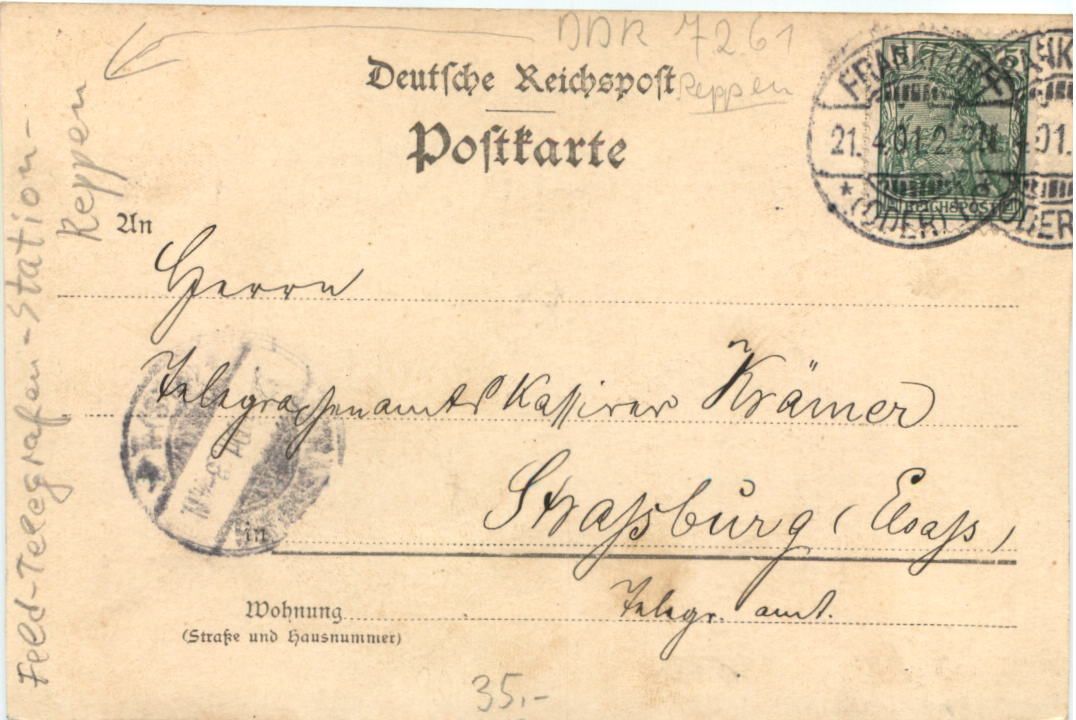 DDR 7261
Reppen
Deutsche Reichspost
Postkarte
FRANKFURT
21.4.01.2-3N.
* (ODER)
5
REICHSPOST
4.01.
(ODER
Feld-Telegrafen-Station-
Reppen
An
Herrn
Telegraphenamts Kassirer Krämer
in Strassburg (Elsass)
Wohnung Telegr. amt.
(Straße und Hausnummer)
35,-